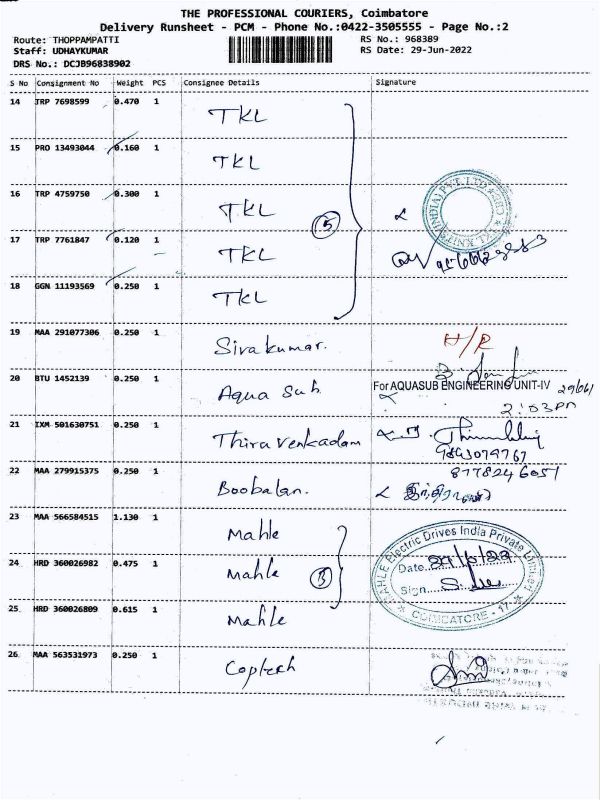 THE PROFESSIONAL COURIERS, Coimbatore
Delivery Runsheet - PCM - Phone No.:0422-3505555 - Page No.:2
Route: THOPPAMPATTI RS No.: 968389
Staff: UDHAYKUMAR RS Date: 29-Jun-2022
DRS No.: DCJB96838902
S No Consignment No Weight PCS Consignee Details Signature
14 TRP 7698599 0.470 1 TKL
15 PRO 13493044 0.160 1 TKL
16 TRP 4759750 0.300 1 TKL
5
17 TRP 7761847 0.120 1 TKL
18 GGN 11193569 0.250 1 TKL
19 MAA 291077306 0.250 1 Sivakumar. H/R
20 BTU 1452139 0.250 1 Aqua Sub. For AQUASUB ENGINEERING UNIT-IV
2:03PM
21 IXM 501630751 0.250 1 Thiravenkadam
8778246051
22 MAA 279915375 0.250 1 Boobalan.
23 MAA 566584515 1.130 1 Mahle
24 HRD 360026982 0.475 1 Mahle 3
MAHLE Electric Drives India Private Limited
Date. 29/6/22
Sign.
COIMBATORE - 17
25 HRD 360026809 0.615 1 Mahle
26 MAA 563531973 0.250 1 Coptech